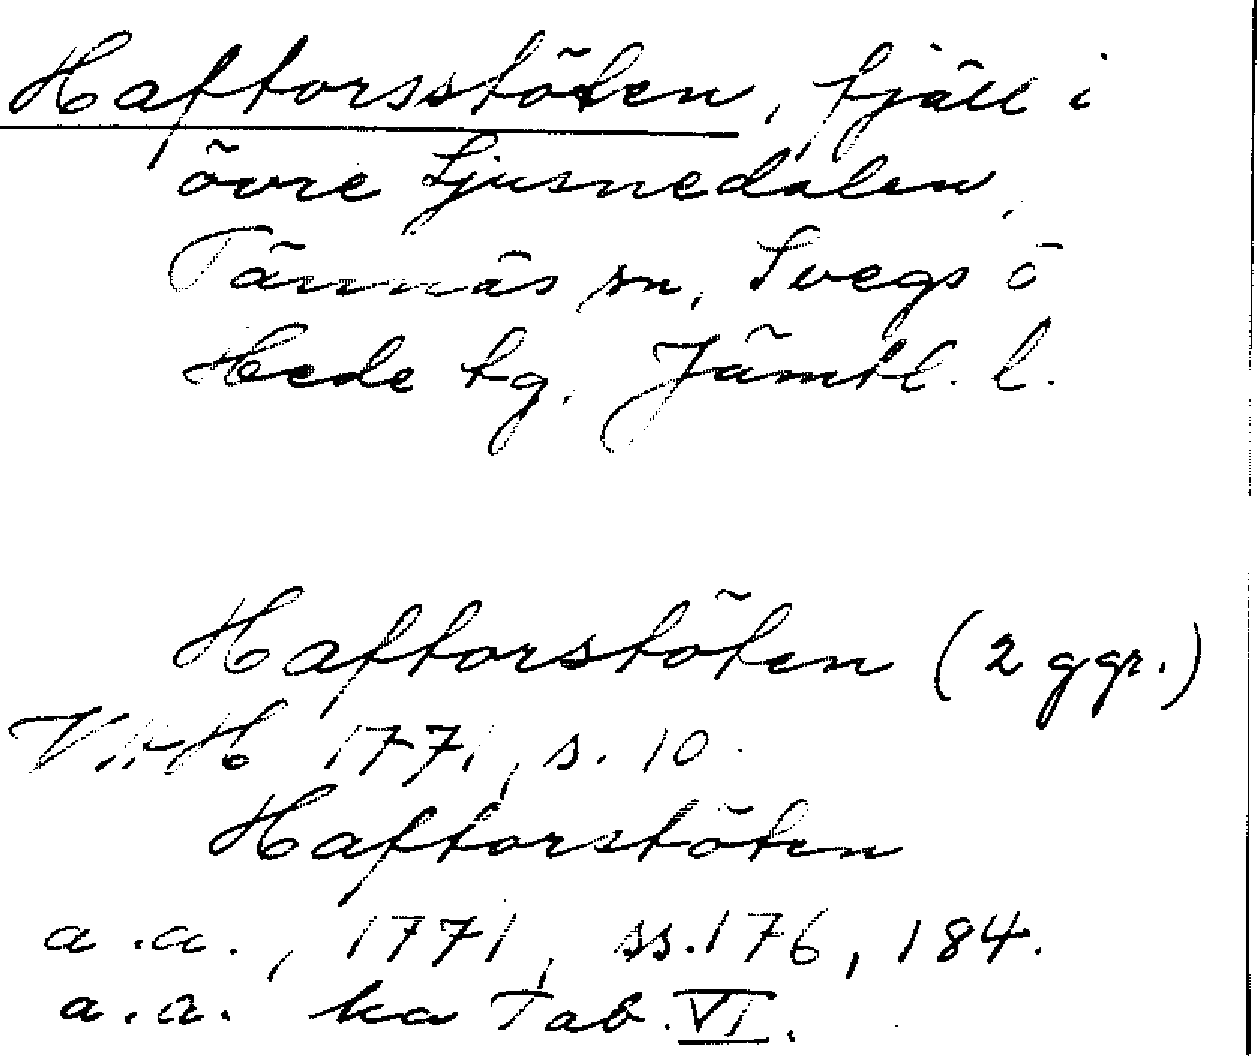 Haftorsstöten, fjäll i
övre Ljusnedalen,
Tännäs sn, Svegs o
Hede tg. Jämtl. l.
Haftorstöten (2 ggr.)
1771, s. 10.
Haftorstöten
a.a., 1771, ss. 176, 184.
a.a. ka Tab. VI.